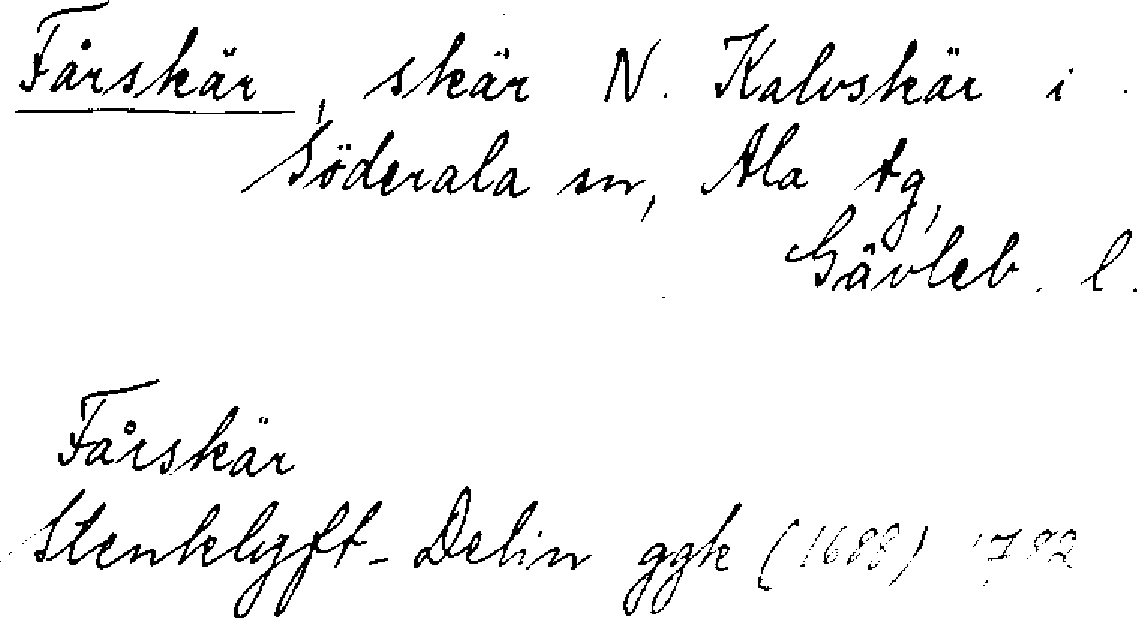 Fårskär, skär N. Kalvskär i
Söderala sn, Ala tg,
Gävleb. l.
Fårskär
Stenklyft-Delin ggk (1688) 1782